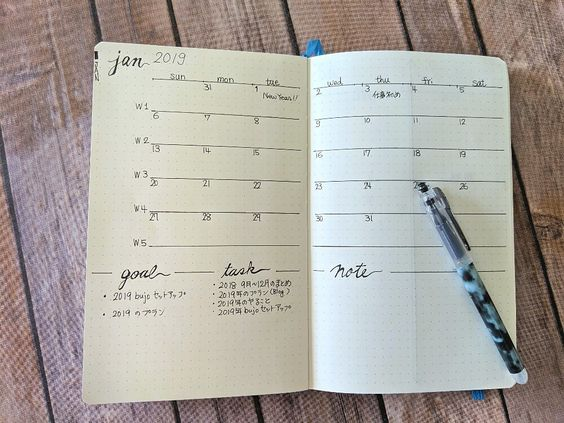 jan 2019
JAN
sun mon tue wed thu fri sat
31 1 2 3 4 5
New Year!! 仕事初め
W.1
6 7 8 9 10 11 12
W.2
13 14 15 16 17 18 19
W.3
20 21 22 23 24 25 26
W.4
27 28 29 30 31
W.5
goal
• 2019 bujo セットアップ
• 2019 のプラン
task
• 2018 9月〜12月のまとめ
• 2019年のプラン(Blog)
• 2019年のやること
• 2019年 bujo セットアップ
note